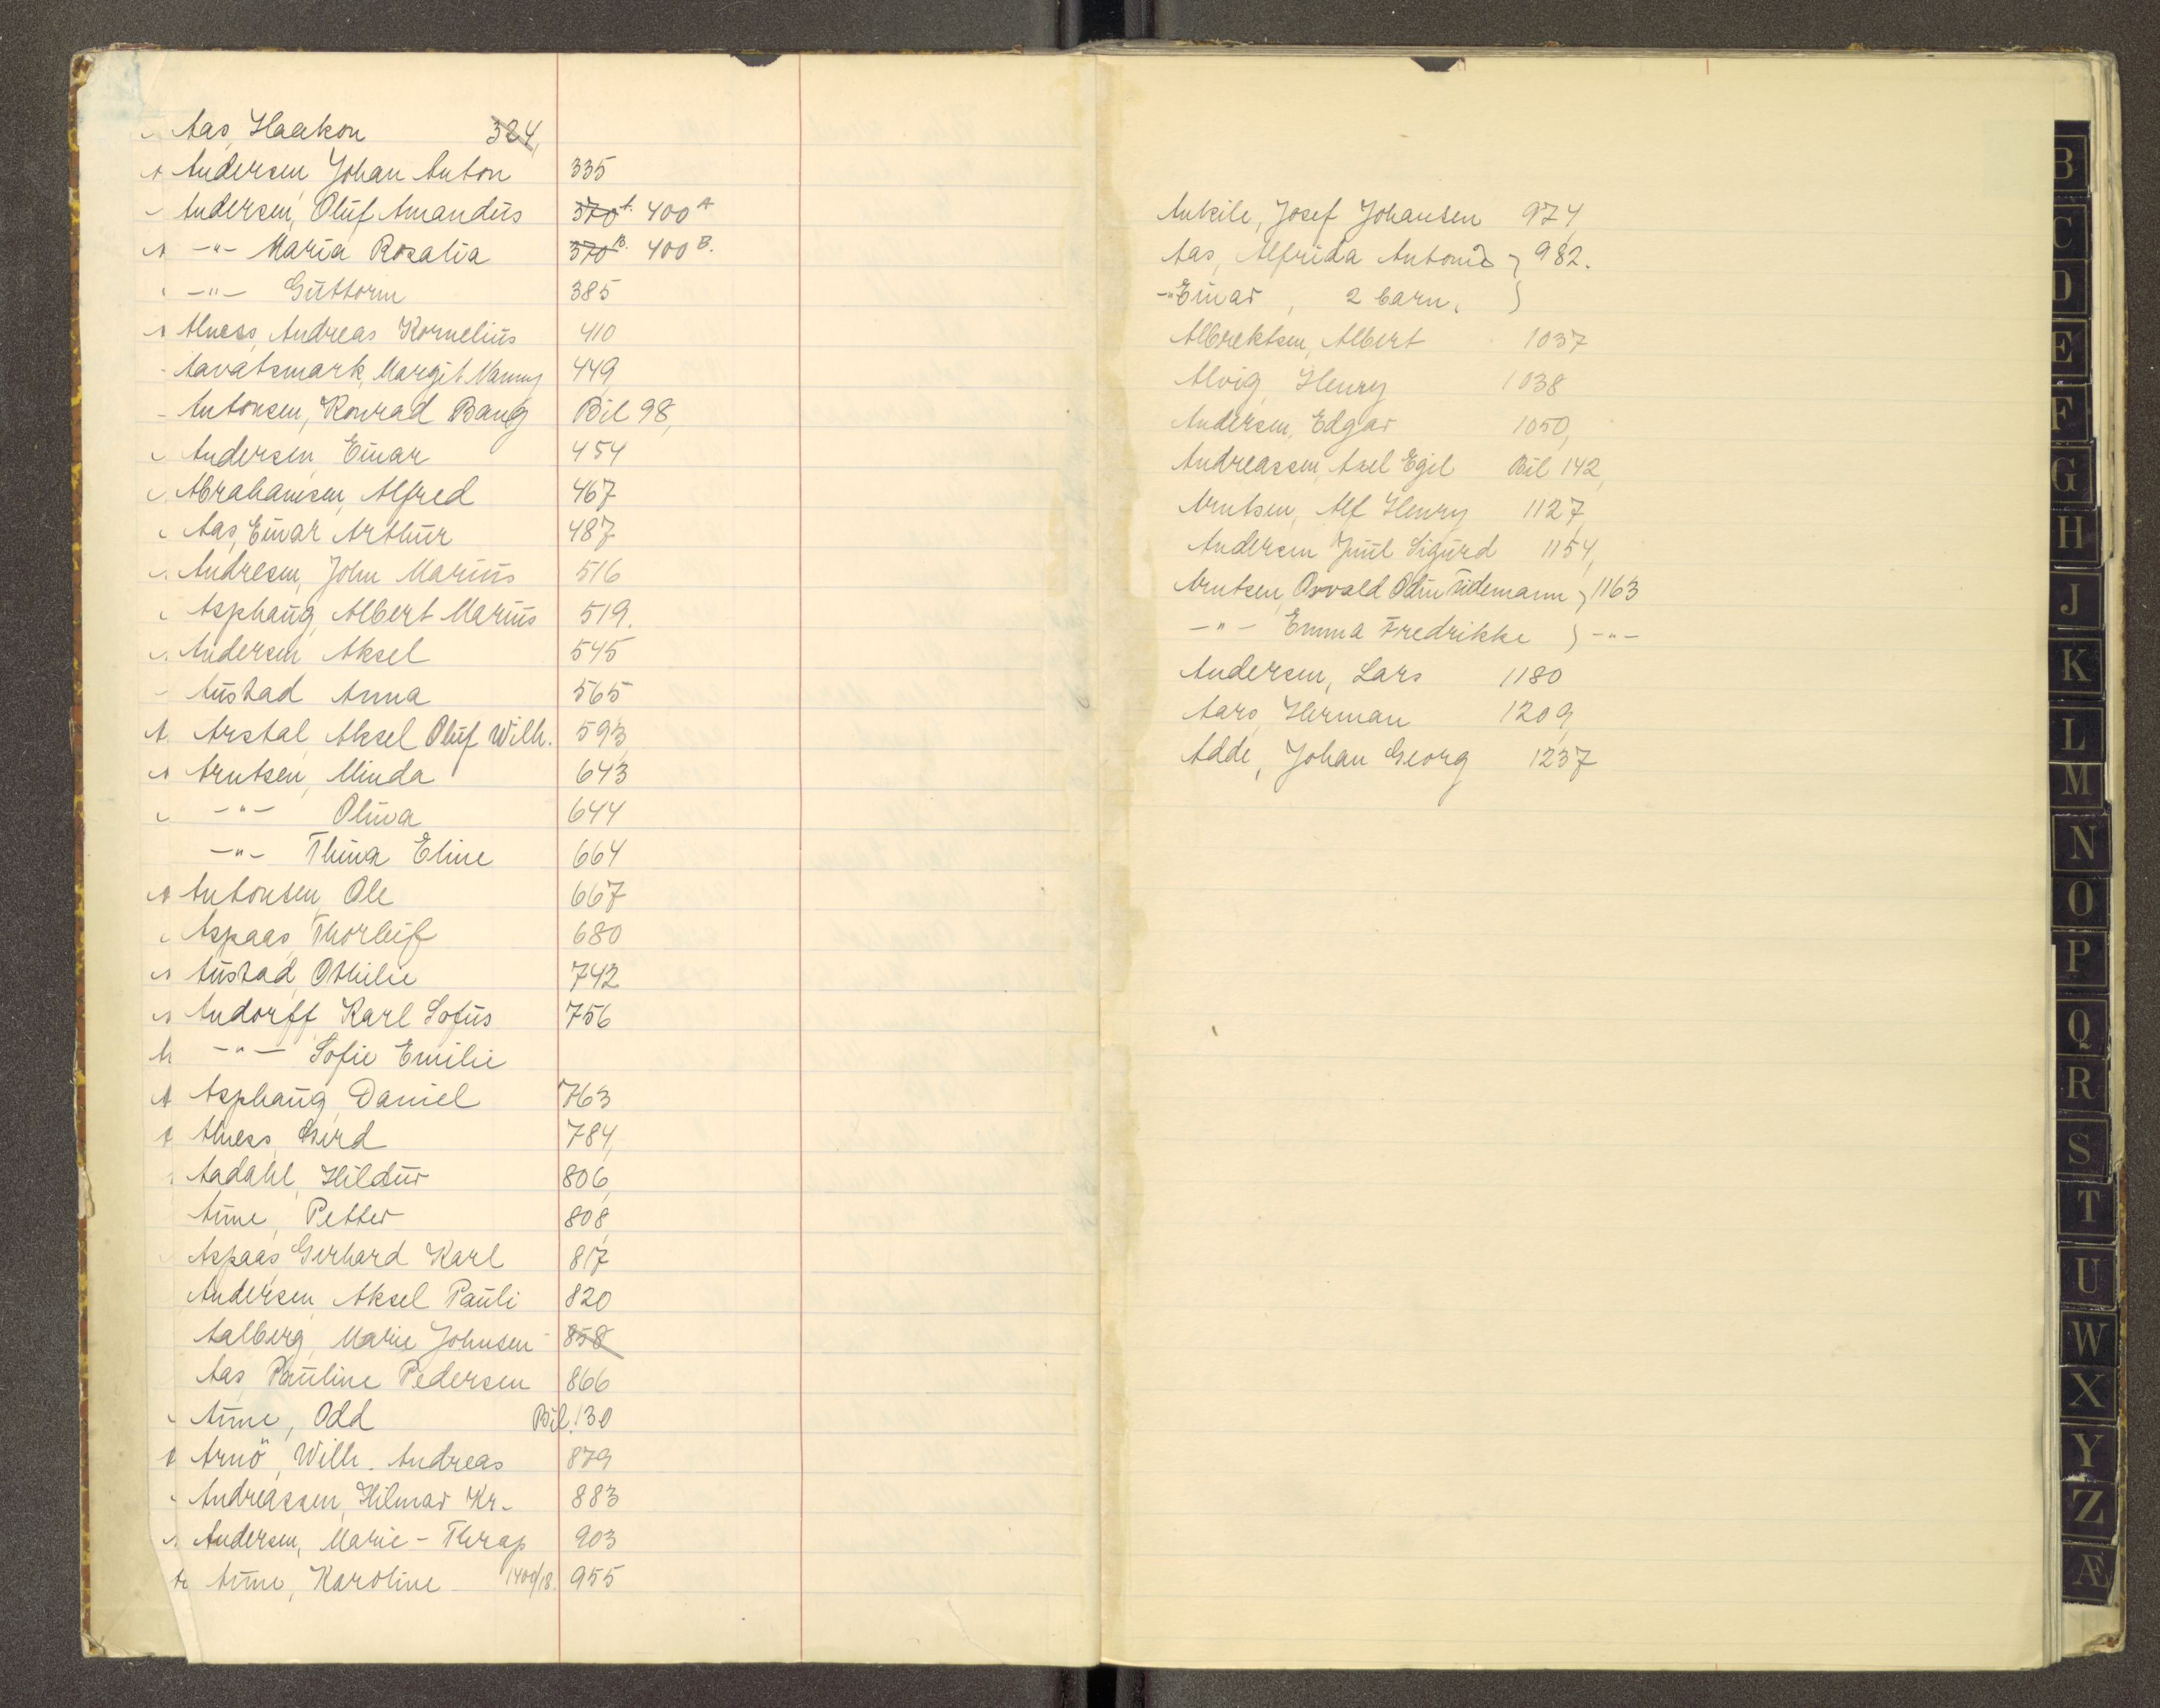 Aas, Haakon 324,
Andersen, Johan Anton 335
Andersen, Oluf Amandus 370 A. 400 A
-"- Maria Rosalia 370 B. 400 B.
-"- Guttorm 385
Alness, Andreas Kornelius 410
Aavatsmark, Margit Nanny 449
Antonsen, Konrad Bang Bil 98,
Andersen, Einar 454
Abrahamsen, Alfred 467
Aas, Einar Arthur 487
Andresen, John Marius 516
Asphaug, Albert Marius 519.
Andersen, Aksel 545
Austad Anna 565
Arstal, Aksel Oluf Wilh. 593,
Arntsen, Minda 643
-"- Oliva 644
-"- Thina Eline 664
Antonsen, Ole 667
Aspaas, Thorleif 680
Austad, Othilie 742
Andorff Karl Sofus 756
-"- Sofie Emilie
Asphaug, Daniel 763
Alness, Gerd 784,
Aadahl, Hildur 806,
Aune, Petter 808,
Aspaas, Gerhard Karl 817
Andersen, Aksel Pauli 820
Aalberg, Marie Johnsen 858
Aas, Pauline Pedersen 866
Aune, Odd Bil. 130
Arnö, Wilh. Andreas 879
Andreassen, Hilmar Kr. 883
Andersen, Marie - Thrap 903
Aune, Karoline 1400/18. 955
Ankile, Josef Johansen 974,
Aas, Alfrida Antonie } 982.
-"- Einar, 2 barn. }
Albrektsen, Albert 1037
Alvig, Henry 1038
Andersen, Edgar 1050,
Andreassen, Axel Egil Bil 142,
Arntsen, Alf Henry 1127,
Andersen Juul Sigurd 1154,
Arntsen, Osvald Odin Tidemann } 1163
-"- Emma Fredrikke } -"-
Andersen, Lars 1180
Aars, Herman 1209,
Adde, Johan Georg 1237
B
C
D
E
F
G
H
J
K
L
M
N
O
P
Q
R
S
T
U
W
X
Y
Z
Æ